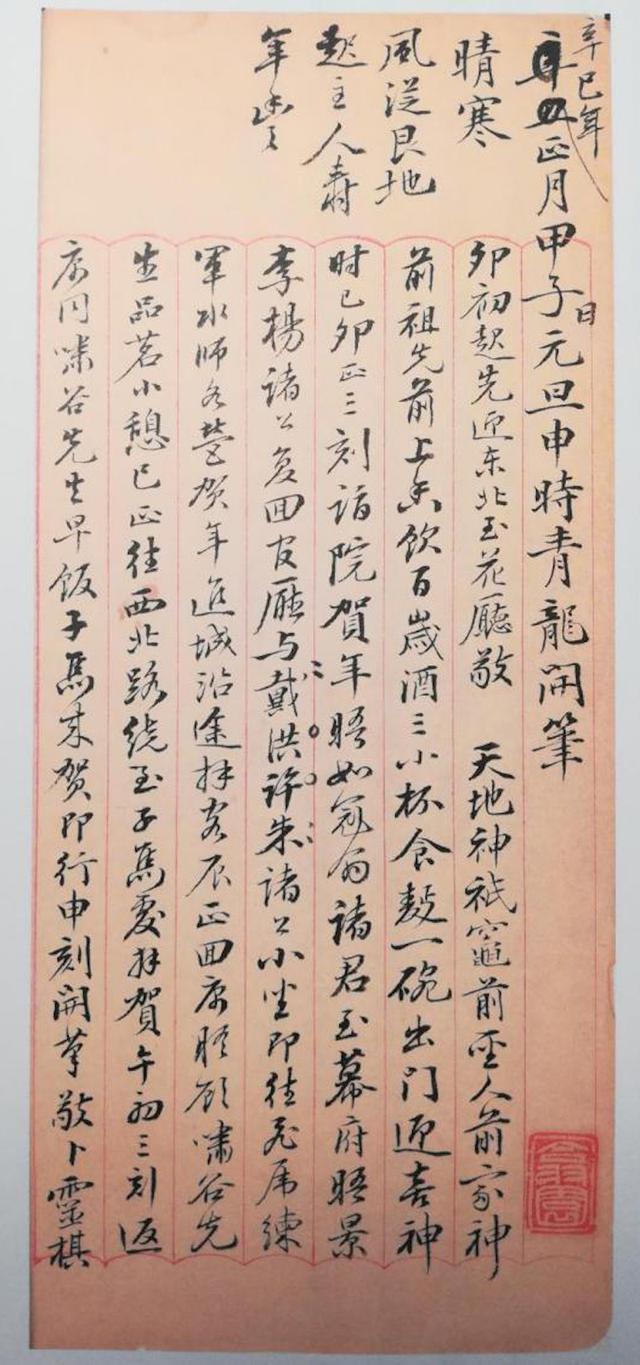 辛巳年
正月甲子日元旦申時青龍開筆
晴寒
風从艮地
起主人壽
年
卯初起先迎东北至花廳敬 天地神祇竈前聖人前家神
前祖先前上香飲百歲酒三小杯食麵一碗出門迎喜神
时已卯正三刻詣院賀年晤如冠翁諸君至幕府晤景
李楊諸公复回官廳与戴洪許朱諸公小坐即往飛虎練
軍水師各營贺年進城沿途拜客辰正回寓晤顧嘯谷先
生品茗小憩巳正往西北路绕至子馬處拜賀午初三刻返
寓同嘯谷先生早飯子馬来贺即行申刻開筆敬卜靈棋